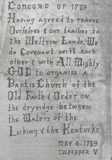 CONCORD OF 1789
Having agreed to remove
Ourselves & our families to
the Western Lands, We
do Covenant with each
other & with All Mighty
GOD to organize a
Baptis Church of the
Old Faith & Order in
the drynedge between
the Waters of the
Licking & the Kentucky
MAY 6, 1789
CULPEPER V